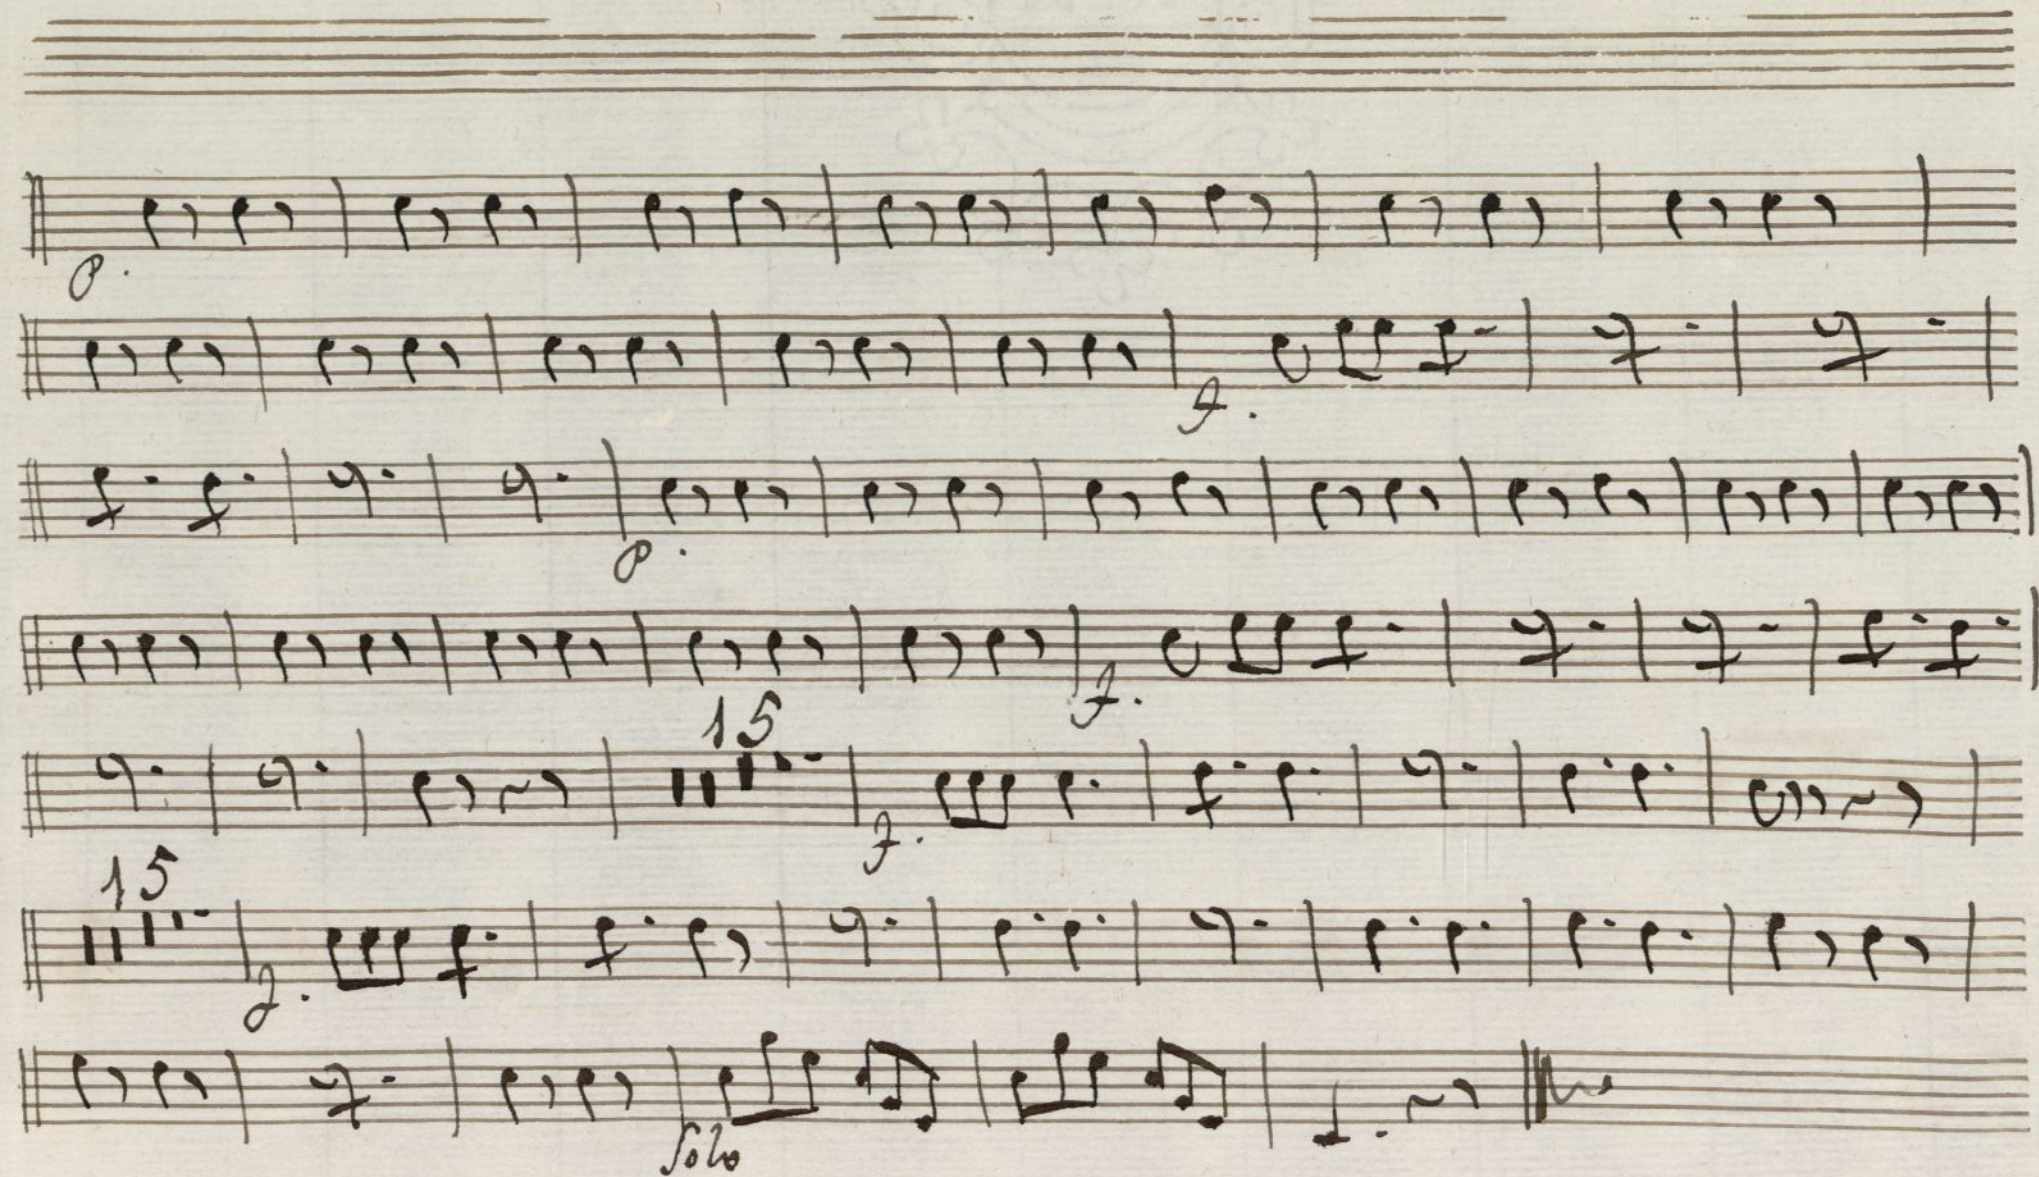 p.
f.
p.
f.
15
f.
15
f.
Solo